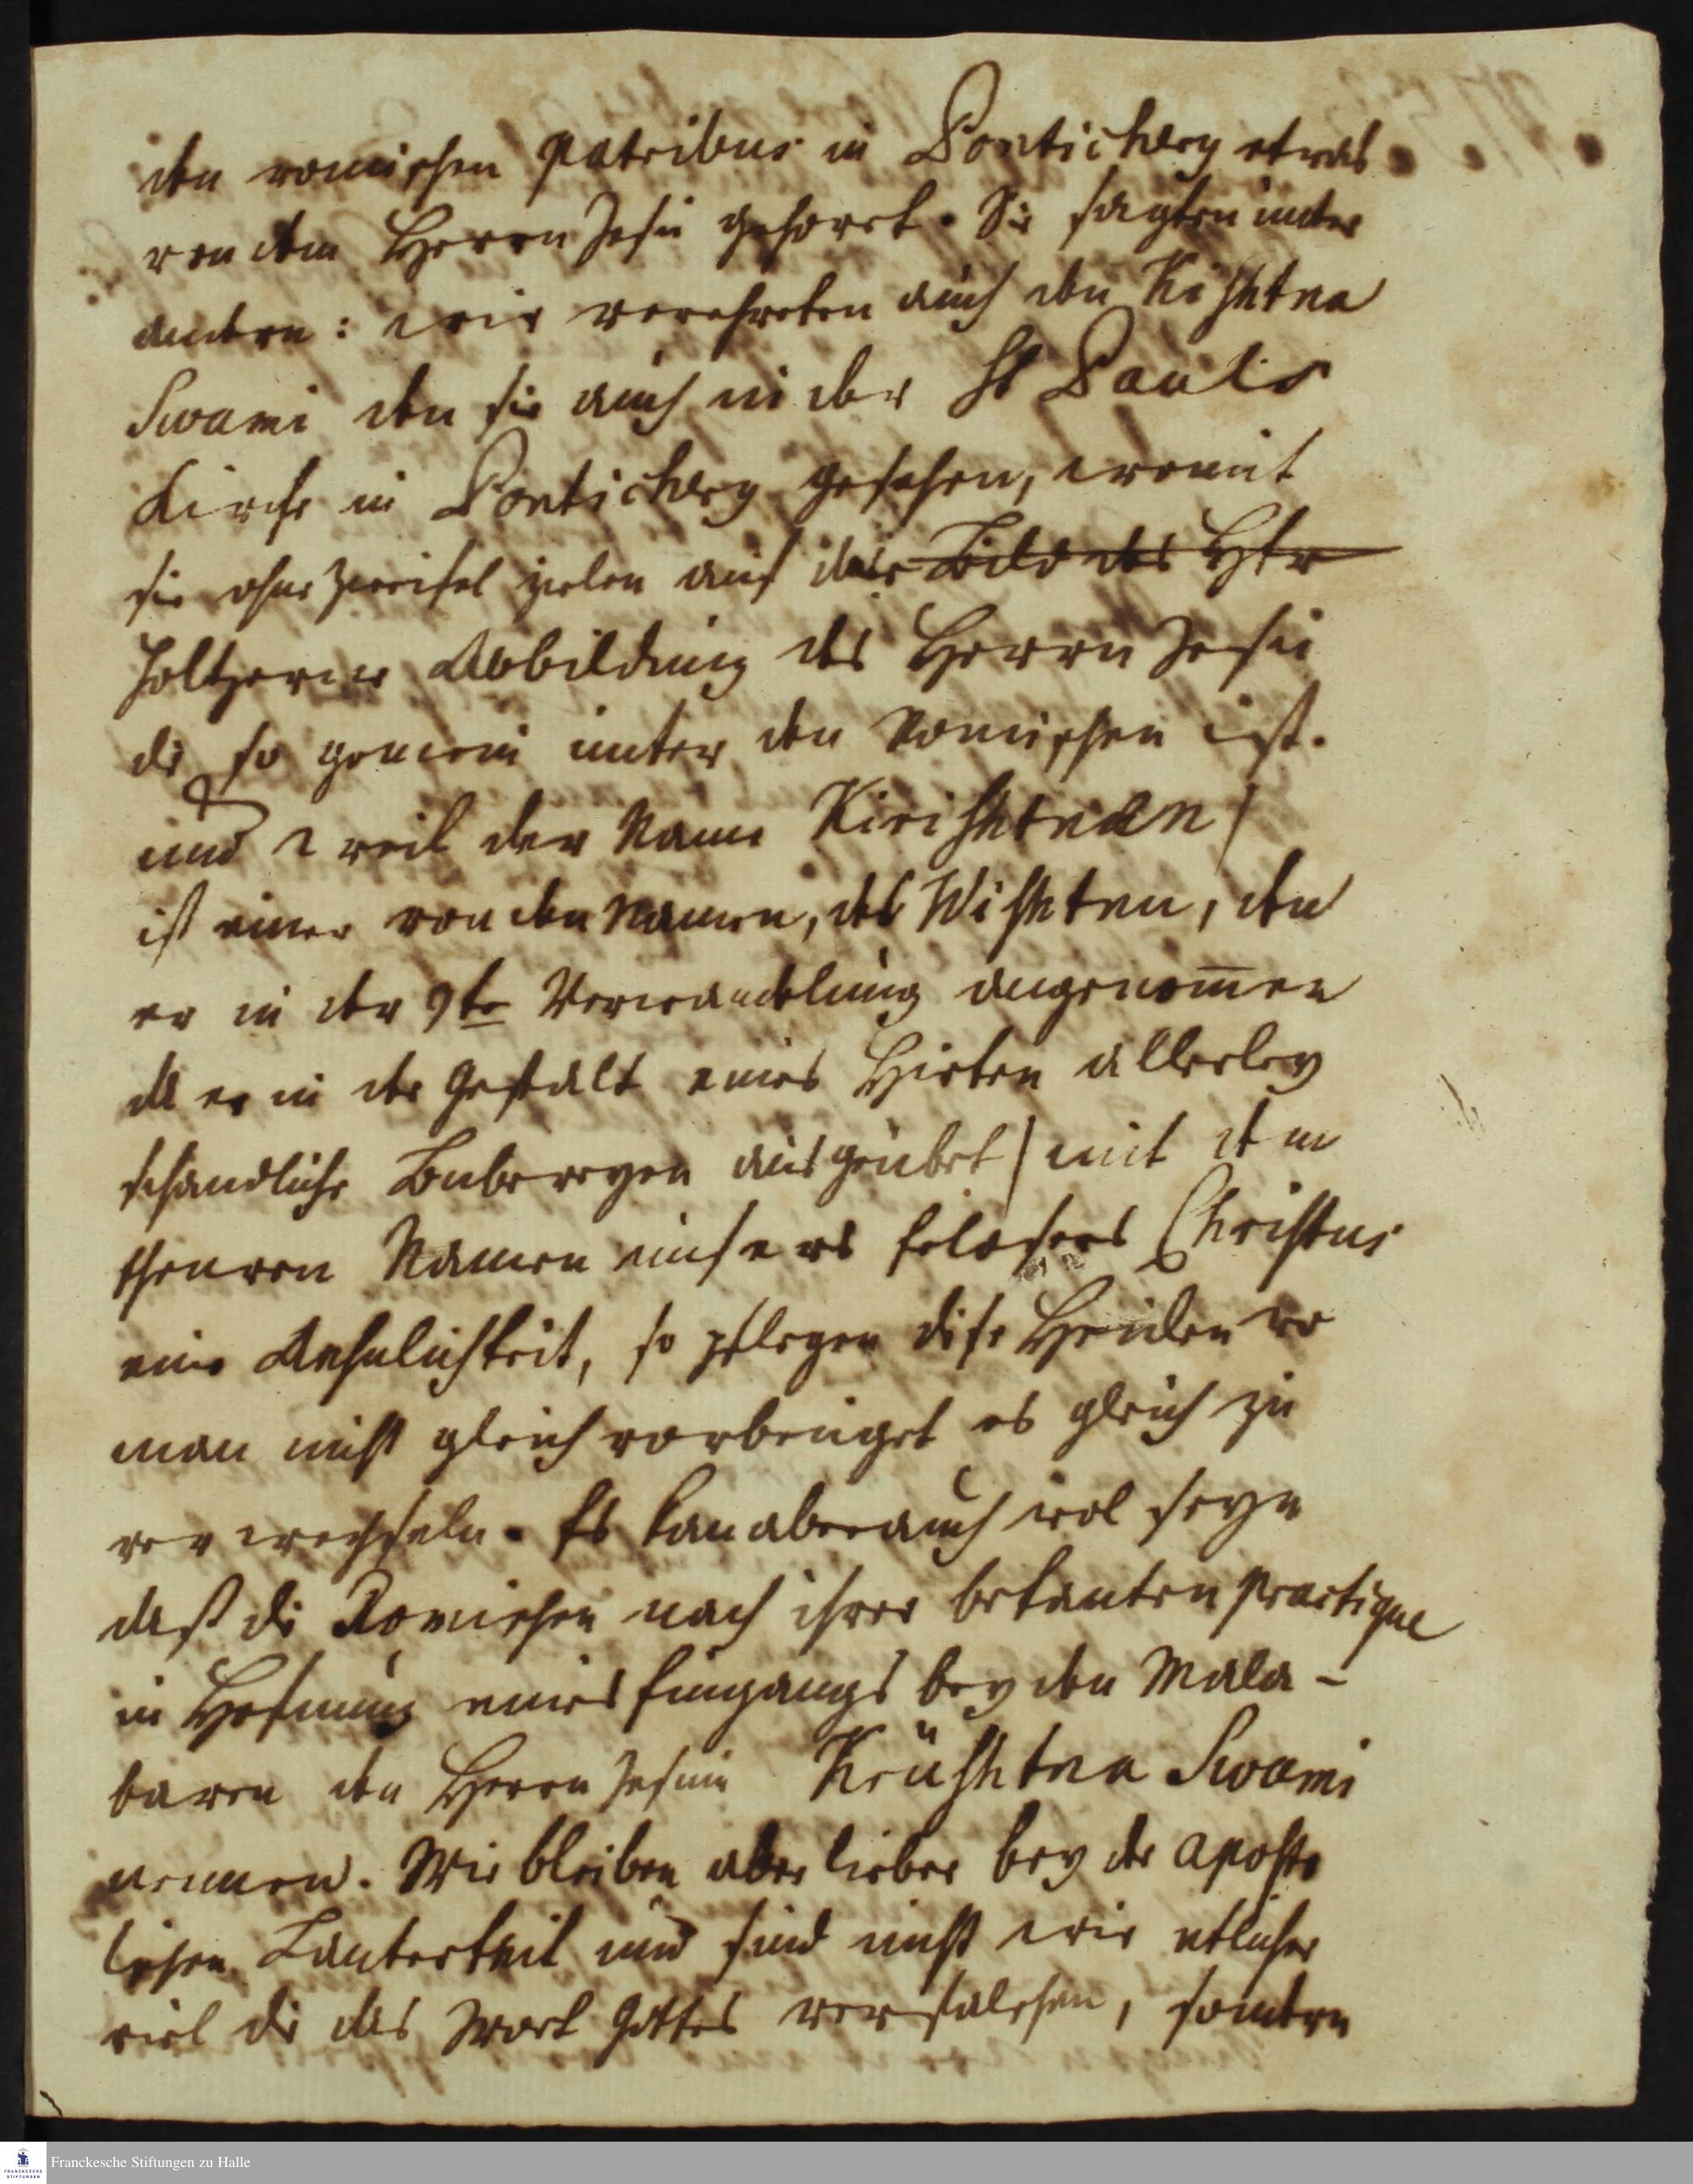 den romischen Patribus in Ponticherÿ etwas
von dem Herrn Jesu gehöret. Sie sagten unter
andern: wir verehreten auch den Kishtna
Swami den sie auch in der St Pauls
Kirche in Ponticherÿ gesehen, womit
sie ohne zweifel zielen auf die Bild des Her
holtzerne Abbildung des Herrn Jesu
die so gemein unter den Romischen ist.
und weil der Name Kirishtnen /
ist einer von den Namen, des Wishtnu, den
er in der 9te Verwandlung angenom̅en
da er in der Gestalt eines Hirten allerley
schandliche Buberejen ausgeubet / mit dem
theuren Namen unsers Erlosers Christus
eine Aehnlichkeit, so pflegen dise Heiden wo
man nicht gleich vorbeuget es gleich zu
verwechseln. Es kan aber auch wol seyn
daß die Romischen nach ihrer bekanten practique
in Hofnung eines Eingangs bey den Mala-
baren den Herrn Jesum Krüshtna Swami
nennen. Wir bleiben aber lieber bey der aposto
lischen Lauterkeit und sind nicht wie etlicher
viel die das Wort Gottes verfalschen, sondern
Franckesche Stiftungen zu Halle
FRANCKESCHE
STIFTUNGEN